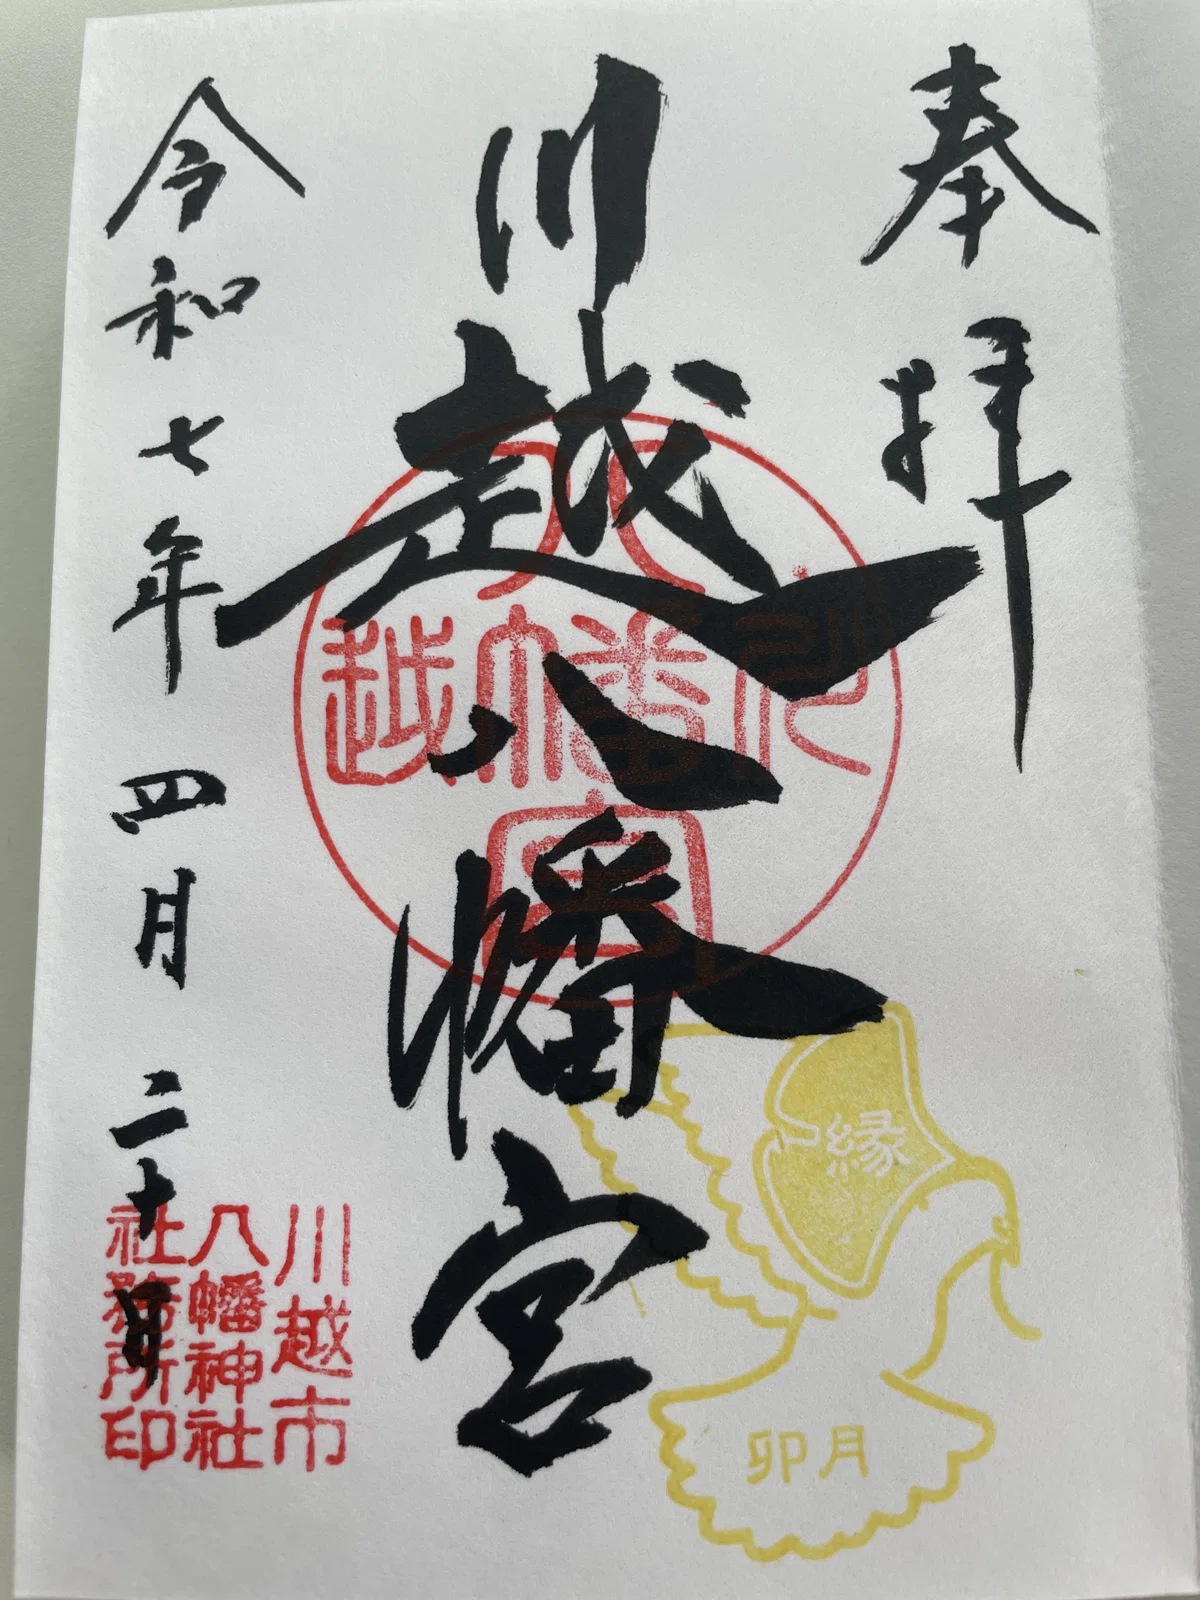 奉拝
川越八幡宮
令和七年四月二十日
八
川幡越
宮
縁
卯月
川越市
八幡神社
社務所印